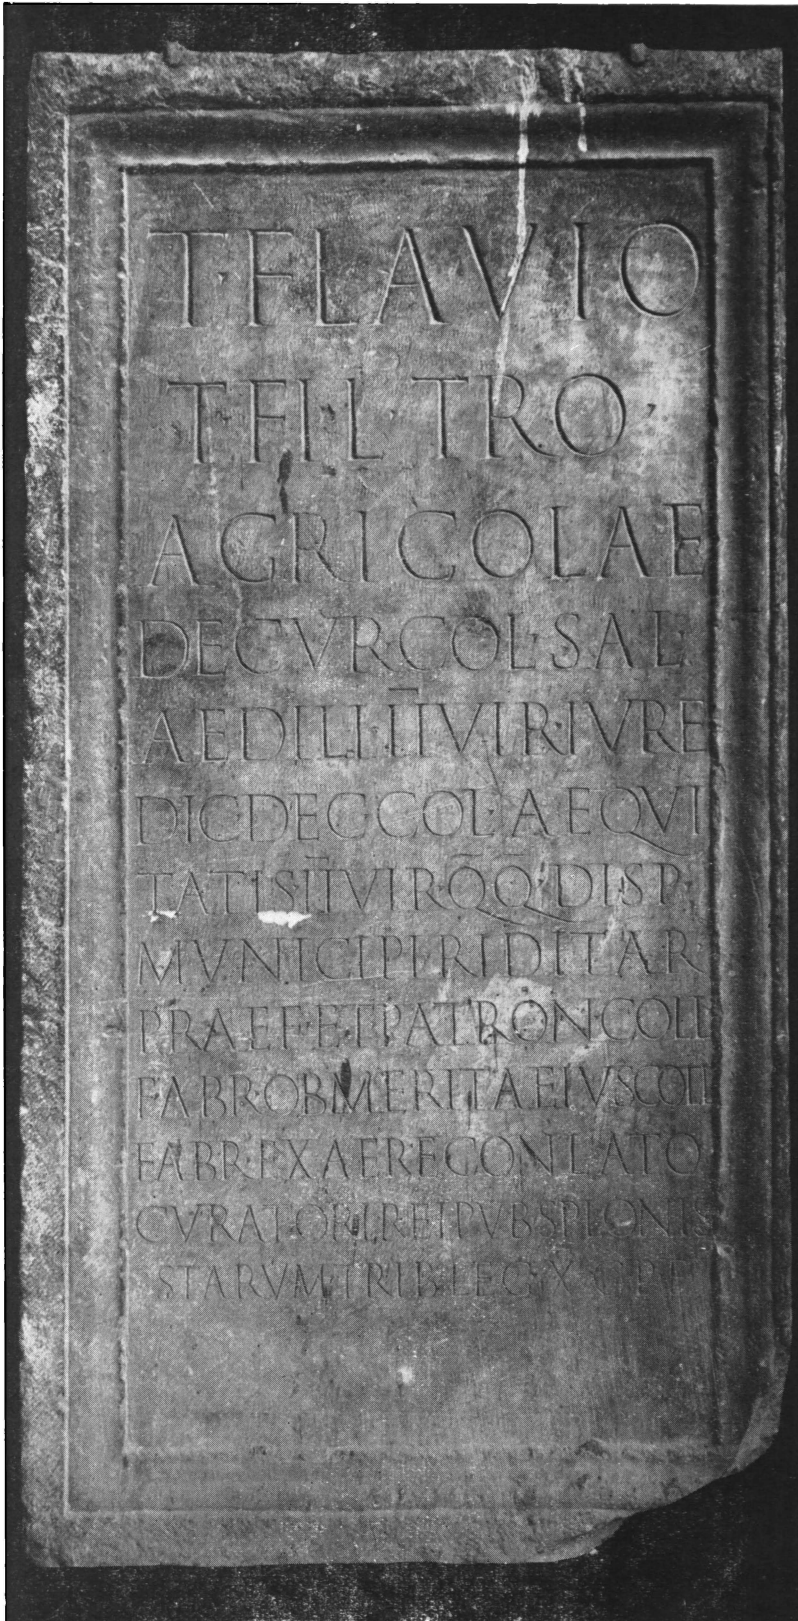 T·FLAVIO
T·FIL·TRO
AGRICOLAE
DECVR·COL·SAL
AEDILI·IIVIR·IVRE
DIC·DEC·COL·AEQVI
TATIS·IIVIR·QQ·DISP
MVNICIPI·RIDITAR
PRAEF·ET·PATRON·COLL
FABR·OB·MERITA·EIVS·COLL
FABR·EX·AERE·CONLATO
CVRATORI·REI·PVB·SPLONIS
STARVM·TRIB·LEG·X·G·P·F